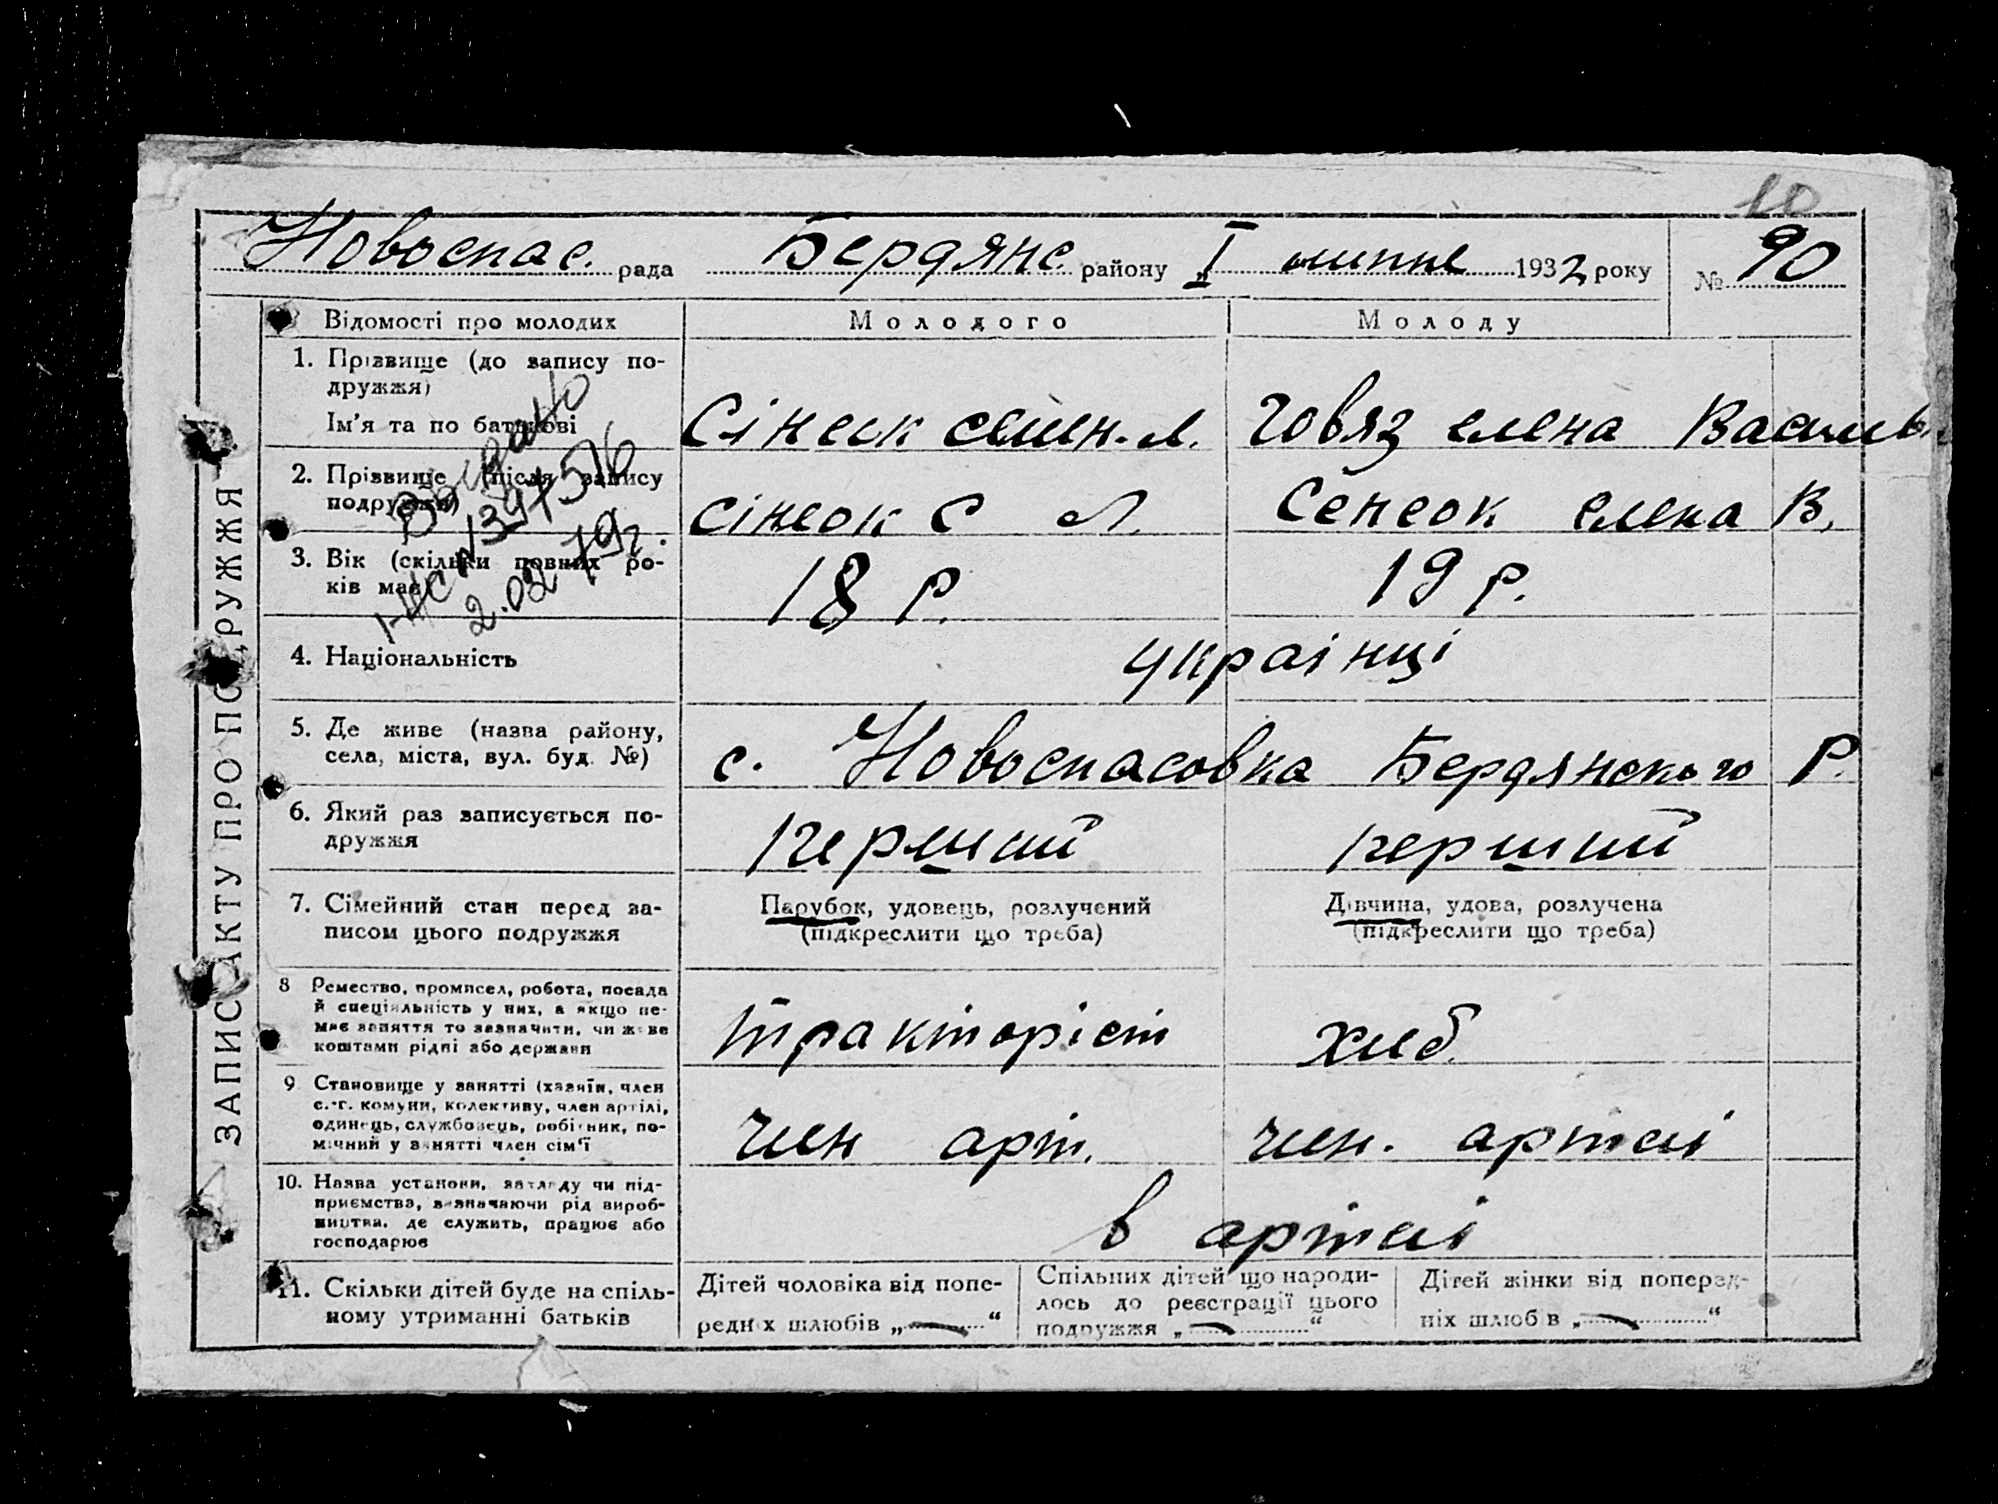 10
Новоспас. рада Бердянс. району „I липня 1932 року № 90
ЗАПИС АКТУ ПРО ПОДРУЖЖЯ
Відомості про молодих Молодого Молоду
1. Прізвище (до запису по-
дружжя)
Ім’я та по батькові
Сінеок семен. л. Говяз елена Василь
2. Прізвище (після запису
подружжя)
сінеок С Л. Сенеок елена В.
3. Вік (скільки повних ро-
ків має)
18 р. 19 р.
Видано
I-ЖС № 397576
2.02 79г.
4. Національність
українці
5. Де живе (назва району,
села, міста, вул. буд. №)
с. Новоспасовка Бердянського р.
6. Який раз записується по-
дружжя
перший перший
7. Сімейний стан перед за-
писом цього подружжя
Парубок, удовець, розлучений
(підкреслити що треба)
Дівчина, удова, розлучена
(підкреслити що треба)
8 Ремество, промисел, робота, посада
й спеціяльність у них, а якщо не-
має заняття то зазначити, чи живе
коштами рідні або держави
тракторіст хліб.
9 Становище у занятті (хазяїн, член
с.-г. комуни, колективу, член артілі,
одинець, службовець, робітник, по-
мічний у занятті член сім’ї
член арт. член. артелі
10. Назва установи, закладу чи під-
приємства, зазначаючи рід вироб-
ництва, де служить, працює або
господарює
в артелі
11. Скільки дітей буде на спіль-
ному утриманні батьків
Дітей чоловіка від попе-
редніх шлюбів „—“
Спільних дітей що народи-
лось до реєстрації цього
подружжя „—“
Дітей жінки від поперед-
ніх шлюбів „—“